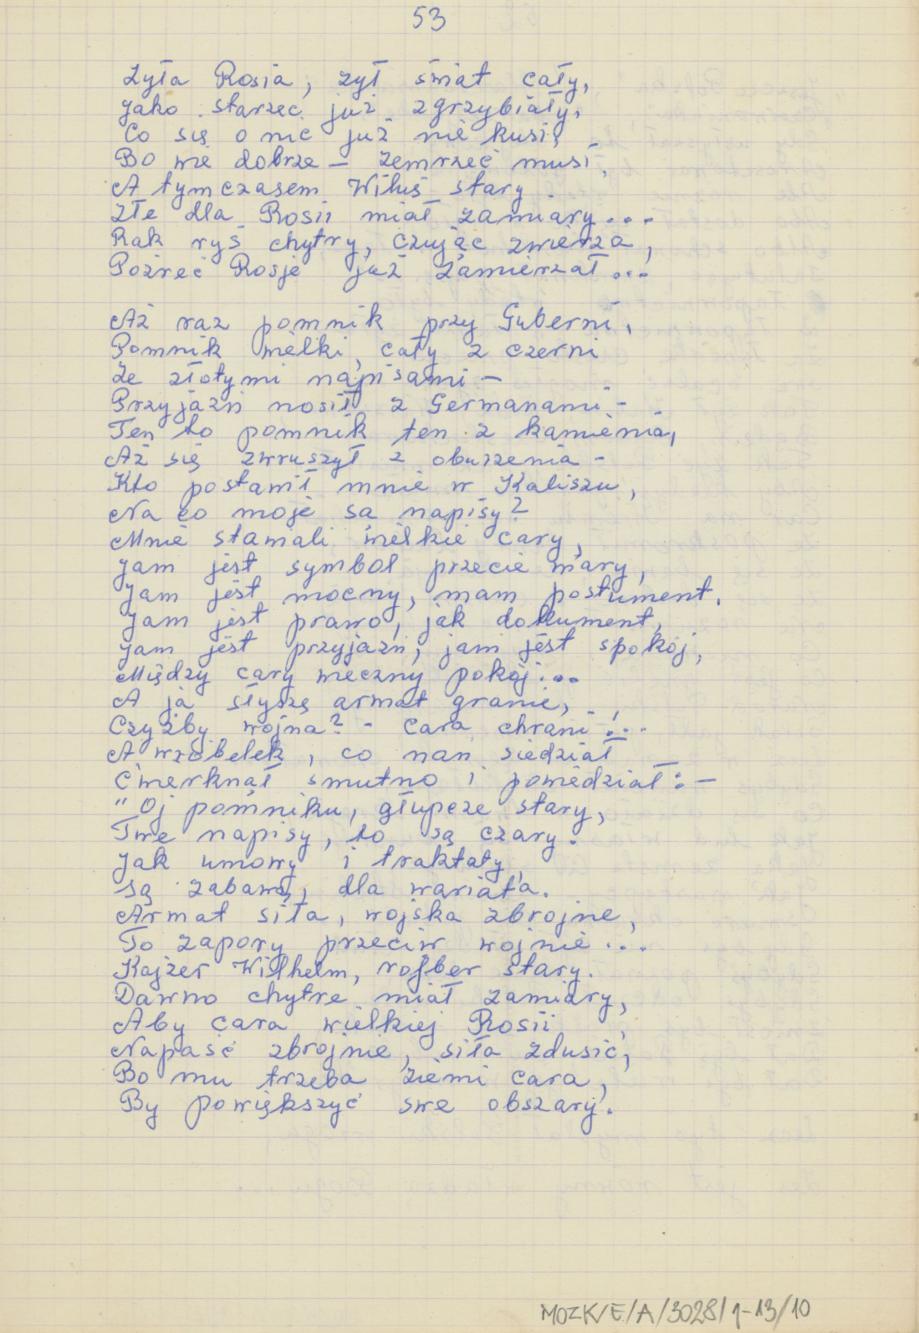 53
Żyła Rosja, żył świat cały,
Jako starzec już zgrzybiały,
Co się o nic już nie kusi,
Bo nie dobrze – zemrzeć musi,
A tymczasem Wiluś stary
Złe dla Rosii miał zamiary...
Rak ryś chytry, czując zwierza,
Pożreć Rosję już zamierzał...
Aż raz pomnik przy Guberni,
Pomnik wielki, cały z czerni
Że złotymi napisami –
Przyjaźń nosił z Germanami –
Ten to pomnik ten z kamienia,
Aż się zwruszył z oburzenia –
Kto postawił mnie w Kaliszu,
Na co moje są napisy?
Mnie stawiali wielkie cary,
Jam jest symbol przecie wiary,
Jam jest mocny, mam postument.
Jam jest prawo, jak dokument,
Jam jest przyjaźń, jam jest spokój,
Między cary wieczny pokój...
A ja słyszę armat granie, –
Czyżby wojna? – cara chrani!...
A wróbelek, co nań siedział
Ćwierknął smutno i powiedział: –
"Oj pomniku, głupcze stary,
Twe napisy, to są czary.
Jak umowy i traktaty,
Są zabawą, dla wariata.
Armat siła, wojska zbrojne,
To zapory przeciw wojnie...
Kajzer Wilhelm, rojber stary.
Dawno chytre miał zamiary,
Aby cara wielkiej Rosii,
Napaść zbrojnie, siłą zdusić,
Bo mu trzeba ziemi cara,
By powiększyć swe obszary.
MOZK/E/A/3028/1-13/10